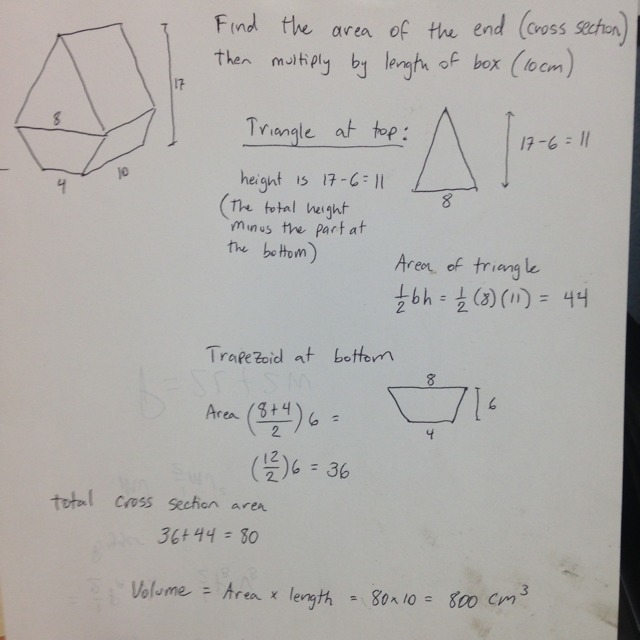 Find the area of the end (cross section)
then multiply by length of box (10cm)
17
8
4
10
Triangle at top:
height is 17-6=11
(The total height
minus the part at
the bottom)
8
17-6 = 11
Area of triangle
½bh = ½(8)(11) = 44
Trapezoid at bottom
Area (8+4/2)6 =
(12/2)6 = 36
8
6
4
total cross section area
36+44 = 80
Volume = Area × length = 80×10 = 800 cm³